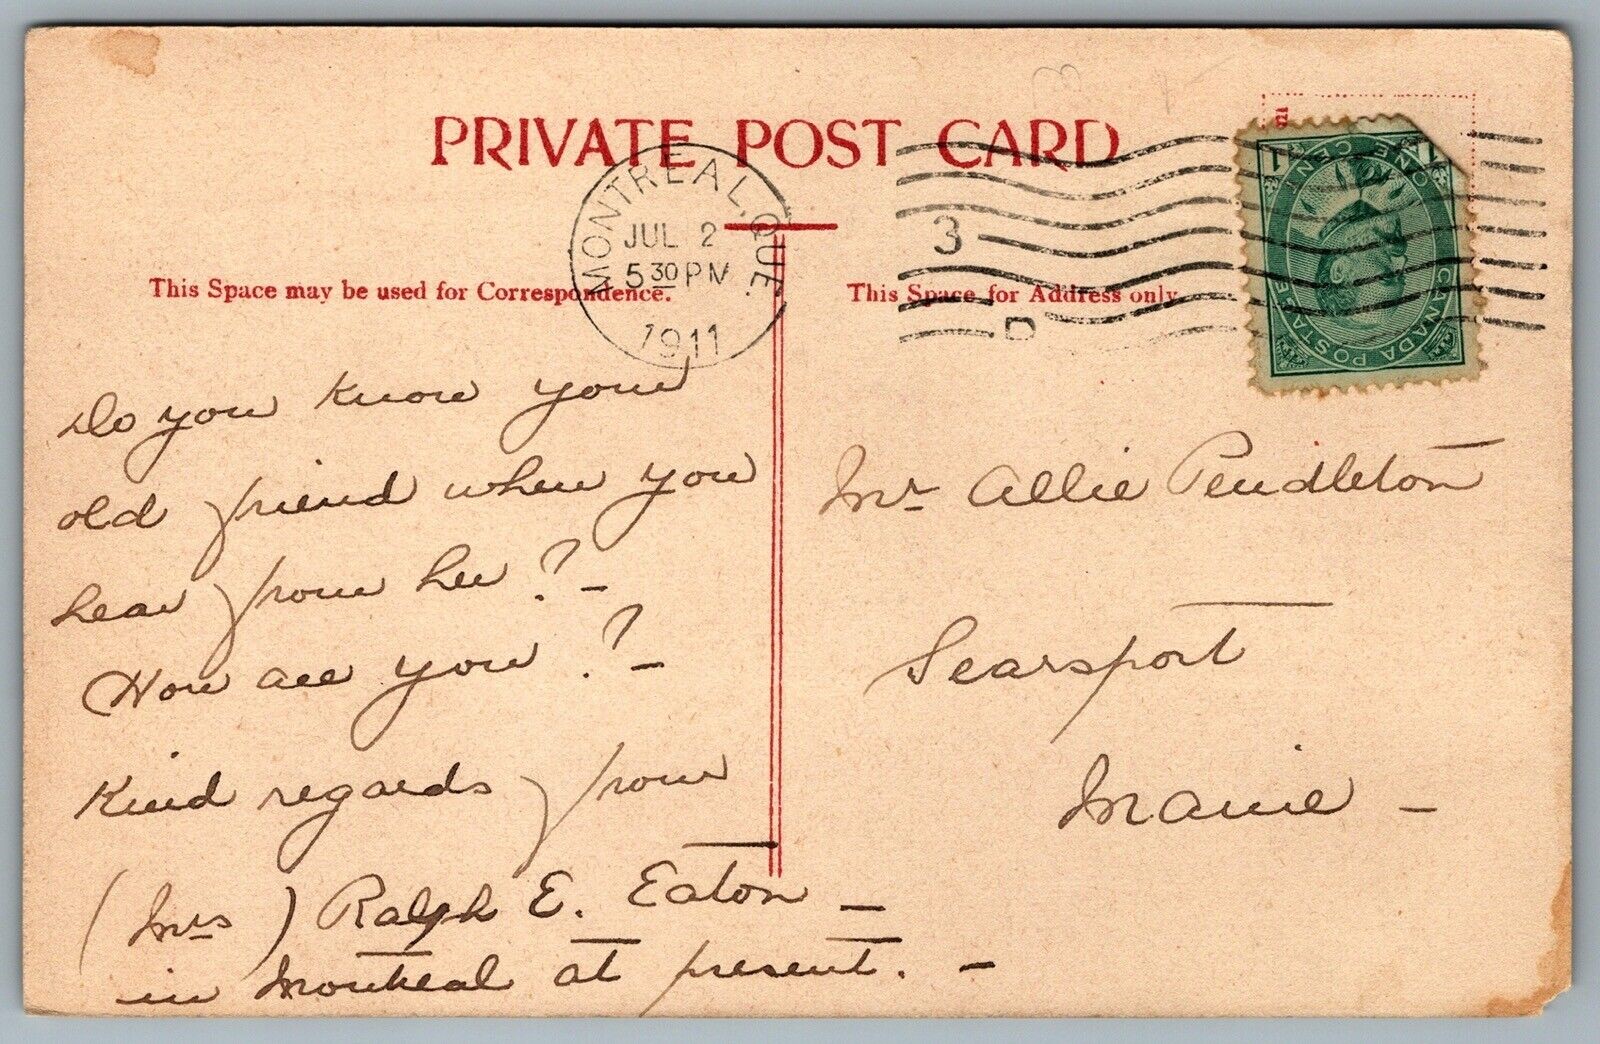 PRIVATE POST CARD
MONTREAL. QUE.
JUL 2
5 30 PM
1911
3
D
ONE CENT
1 1
CANADA POSTAGE
This Space may be used for Correspondence.
This Space for Address only
Do you know your
old friend when you
hear from her? -
How are you? -
Kind regards from
(Mrs) Ralph E. Eaton -
in Montreal at present. -
Mr Allie Pendleton
Searsport
Maine -